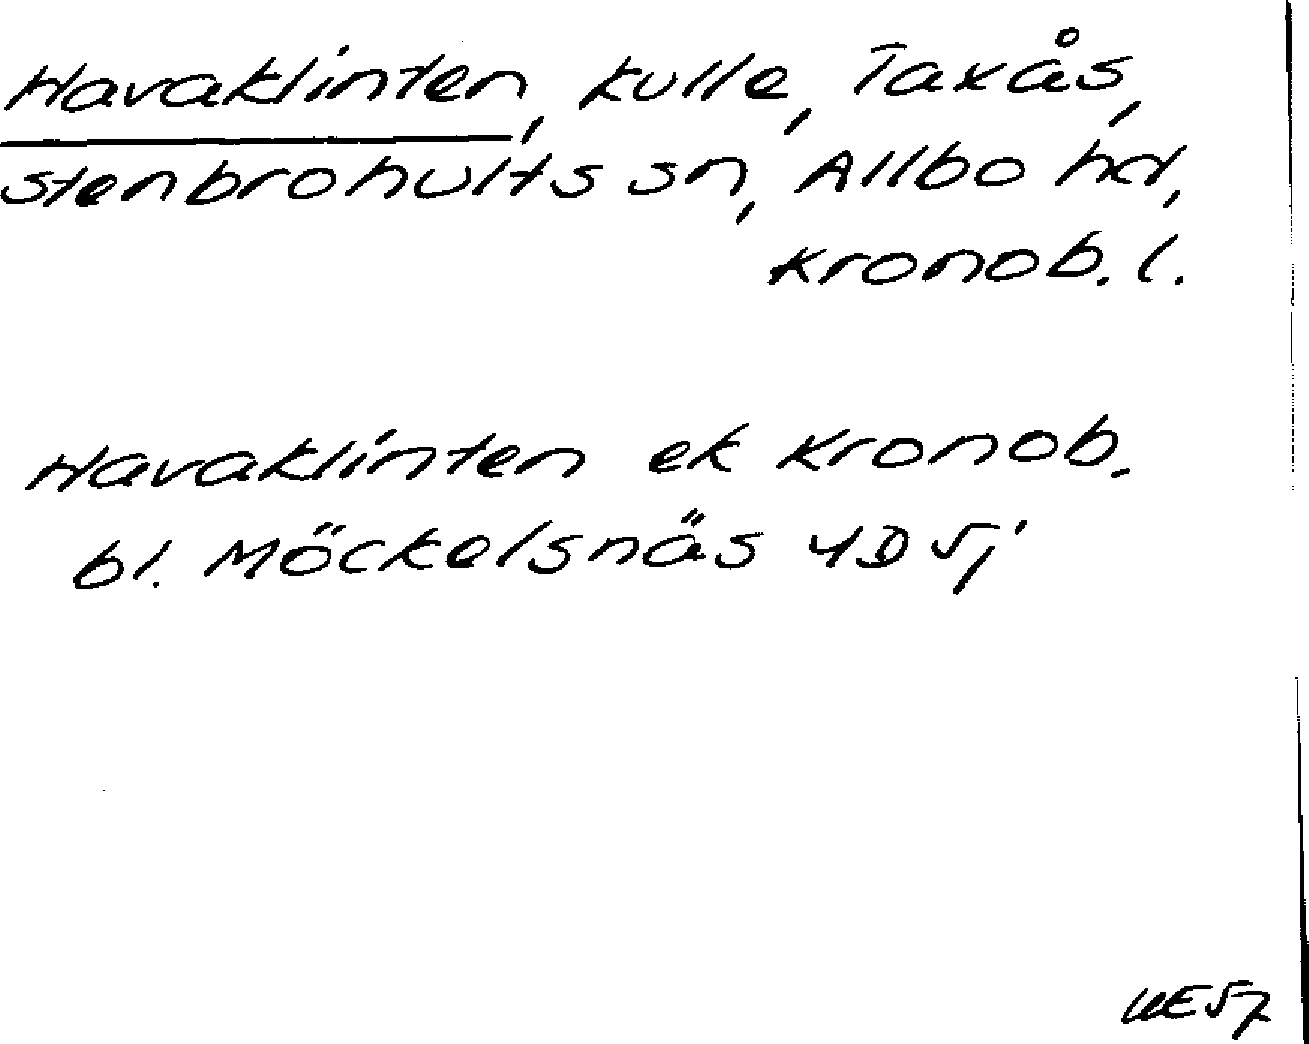 Havaklinten, kulle, Taxås,
Stenbrohults sn, Allbo hd,
Kronob. l.
Havaklinten ek Kronob.
bl. Möckelsnäs 4D5j